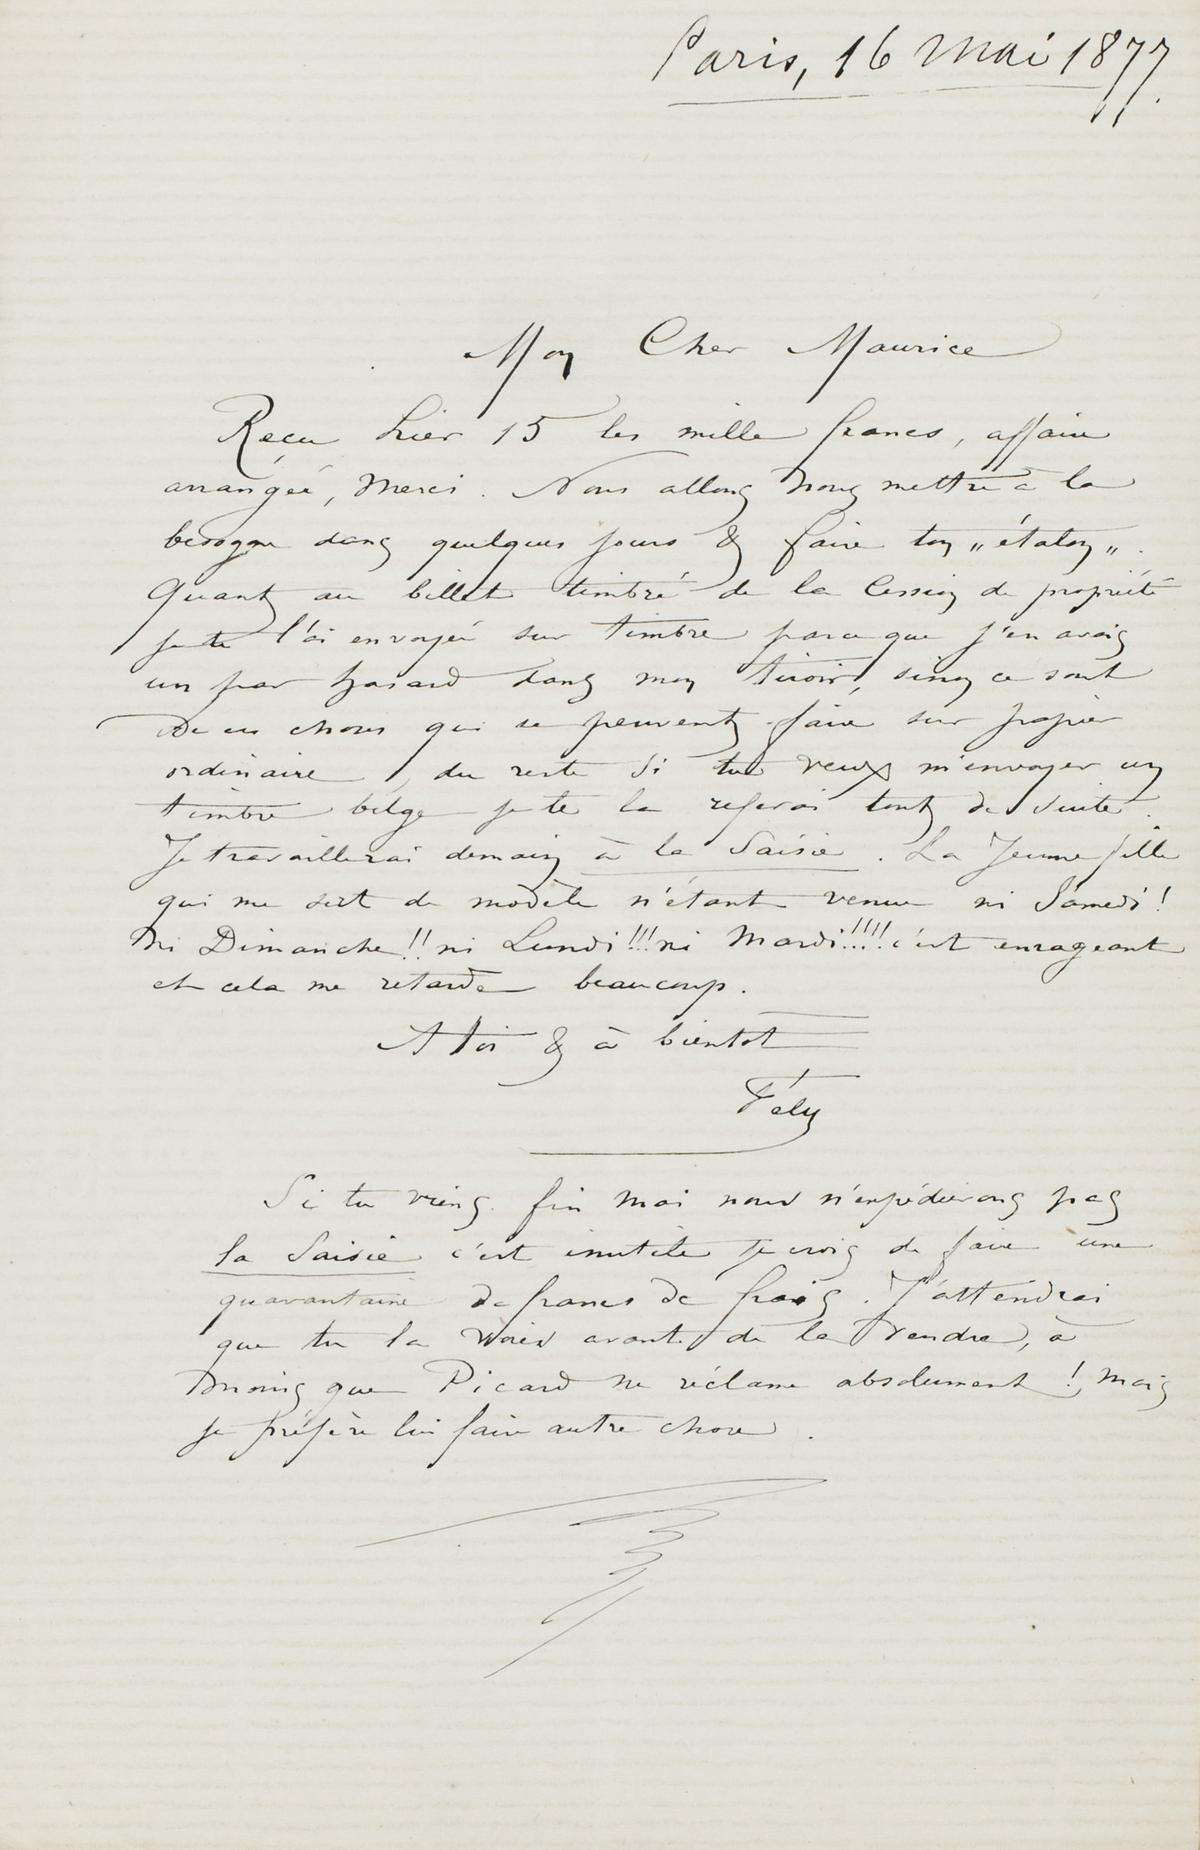 Paris, 16 Mai 1877.
Mon Cher Maurice
Reçu hier 15 les mille francs, affaire
arrangée, Merci. Nous allons nous mettre à la
besogne dans quelques jours & faire ton „étalon„.
Quant au billet timbré de la Cession de propriété
je te l'ai envoyée sur timbre parce que j'en avais
un par hasard dans mon tiroir, sinon ce sont
de ces choses qui se peuvent faire sur papier
ordinaire, du reste si tu veux m'envoyer un
timbre belge je te la referai tout de suite.
Je travaillerai demain à la Saisie. La Jeune fille
qui me sert de modèle n'étant venue ni Samedi!
ni Dimanche!! ni Lundi!!! ni Mardi!!!! c'est enrageant
et cela me retarde beaucoup.
A toi & à bientot
Fély
Si tu viens fin Mai nous n'expédierons pas
la Saisie c'est inutile je crois de faire une
quarantaine de francs de frais. J'attendrai
que tu la voies avant de la vendre, à
moins que Picard ne réclame absolument! mais
je préfère lui faire autre chose.